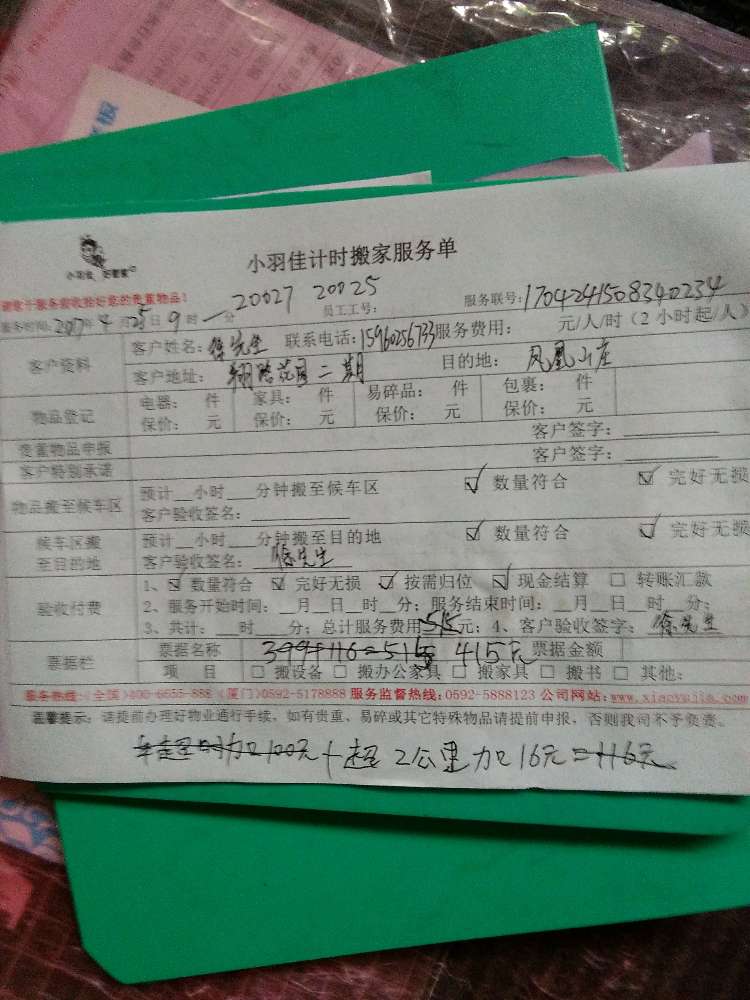 小羽佳 好管家
小羽佳计时搬家服务单
请您于服务前收拾好您的贵重物品！
20027 20025
服务时间：2017年4月25日9时—分 员工工号： 服务联号：1704241508340234
客户资料 客户姓名：徐先生 联系电话：15960256733 服务费用： 元/人/时（2小时起/人）
客户地址：翔路花园二期 目的地：凤凰山庄
物品登记 电器： 件 家具： 件 易碎品： 件 包裹： 件
保价： 元 保价： 元 保价： 元 保价： 元
贵重物品申报 客户签字：
客户特别承诺 客户签字：
物品搬至候车区 预计__小时__分钟搬至候车区 ☑ 数量符合 ☑ 完好无损
客户验收签名：
候车区搬至目的地 预计__小时__分钟搬至目的地 ☑ 数量符合 ☑ 完好无损
客户验收签名：徐先生
验收付费 1、☑ 数量符合 ☑ 完好无损 ☑ 按需归位 ☑ 现金结算 □ 转账汇款
2、服务开始时间：__月__日__时__分；服务结束时间：__月__日__时__分；
3、共计：__时__分；总计服务费用515元；4、客户验收签字：徐先生
票据栏 票据名称 399+116=515 415元 票据金额
项 目 □ 搬设备 □ 搬办公家具 □ 搬家具 □ 搬书 □ 其他：
服务热线：（全国）400-6655-888（厦门）0592-5178888 服务监督热线：0592-5888123 公司网站：www.xiaoyujia.com
温馨提示：请提前办理好物业通行手续，如有贵重、易碎或其它特殊物品请提前申报，否则我司不予负责。
加100元+超2公里加16元=116元